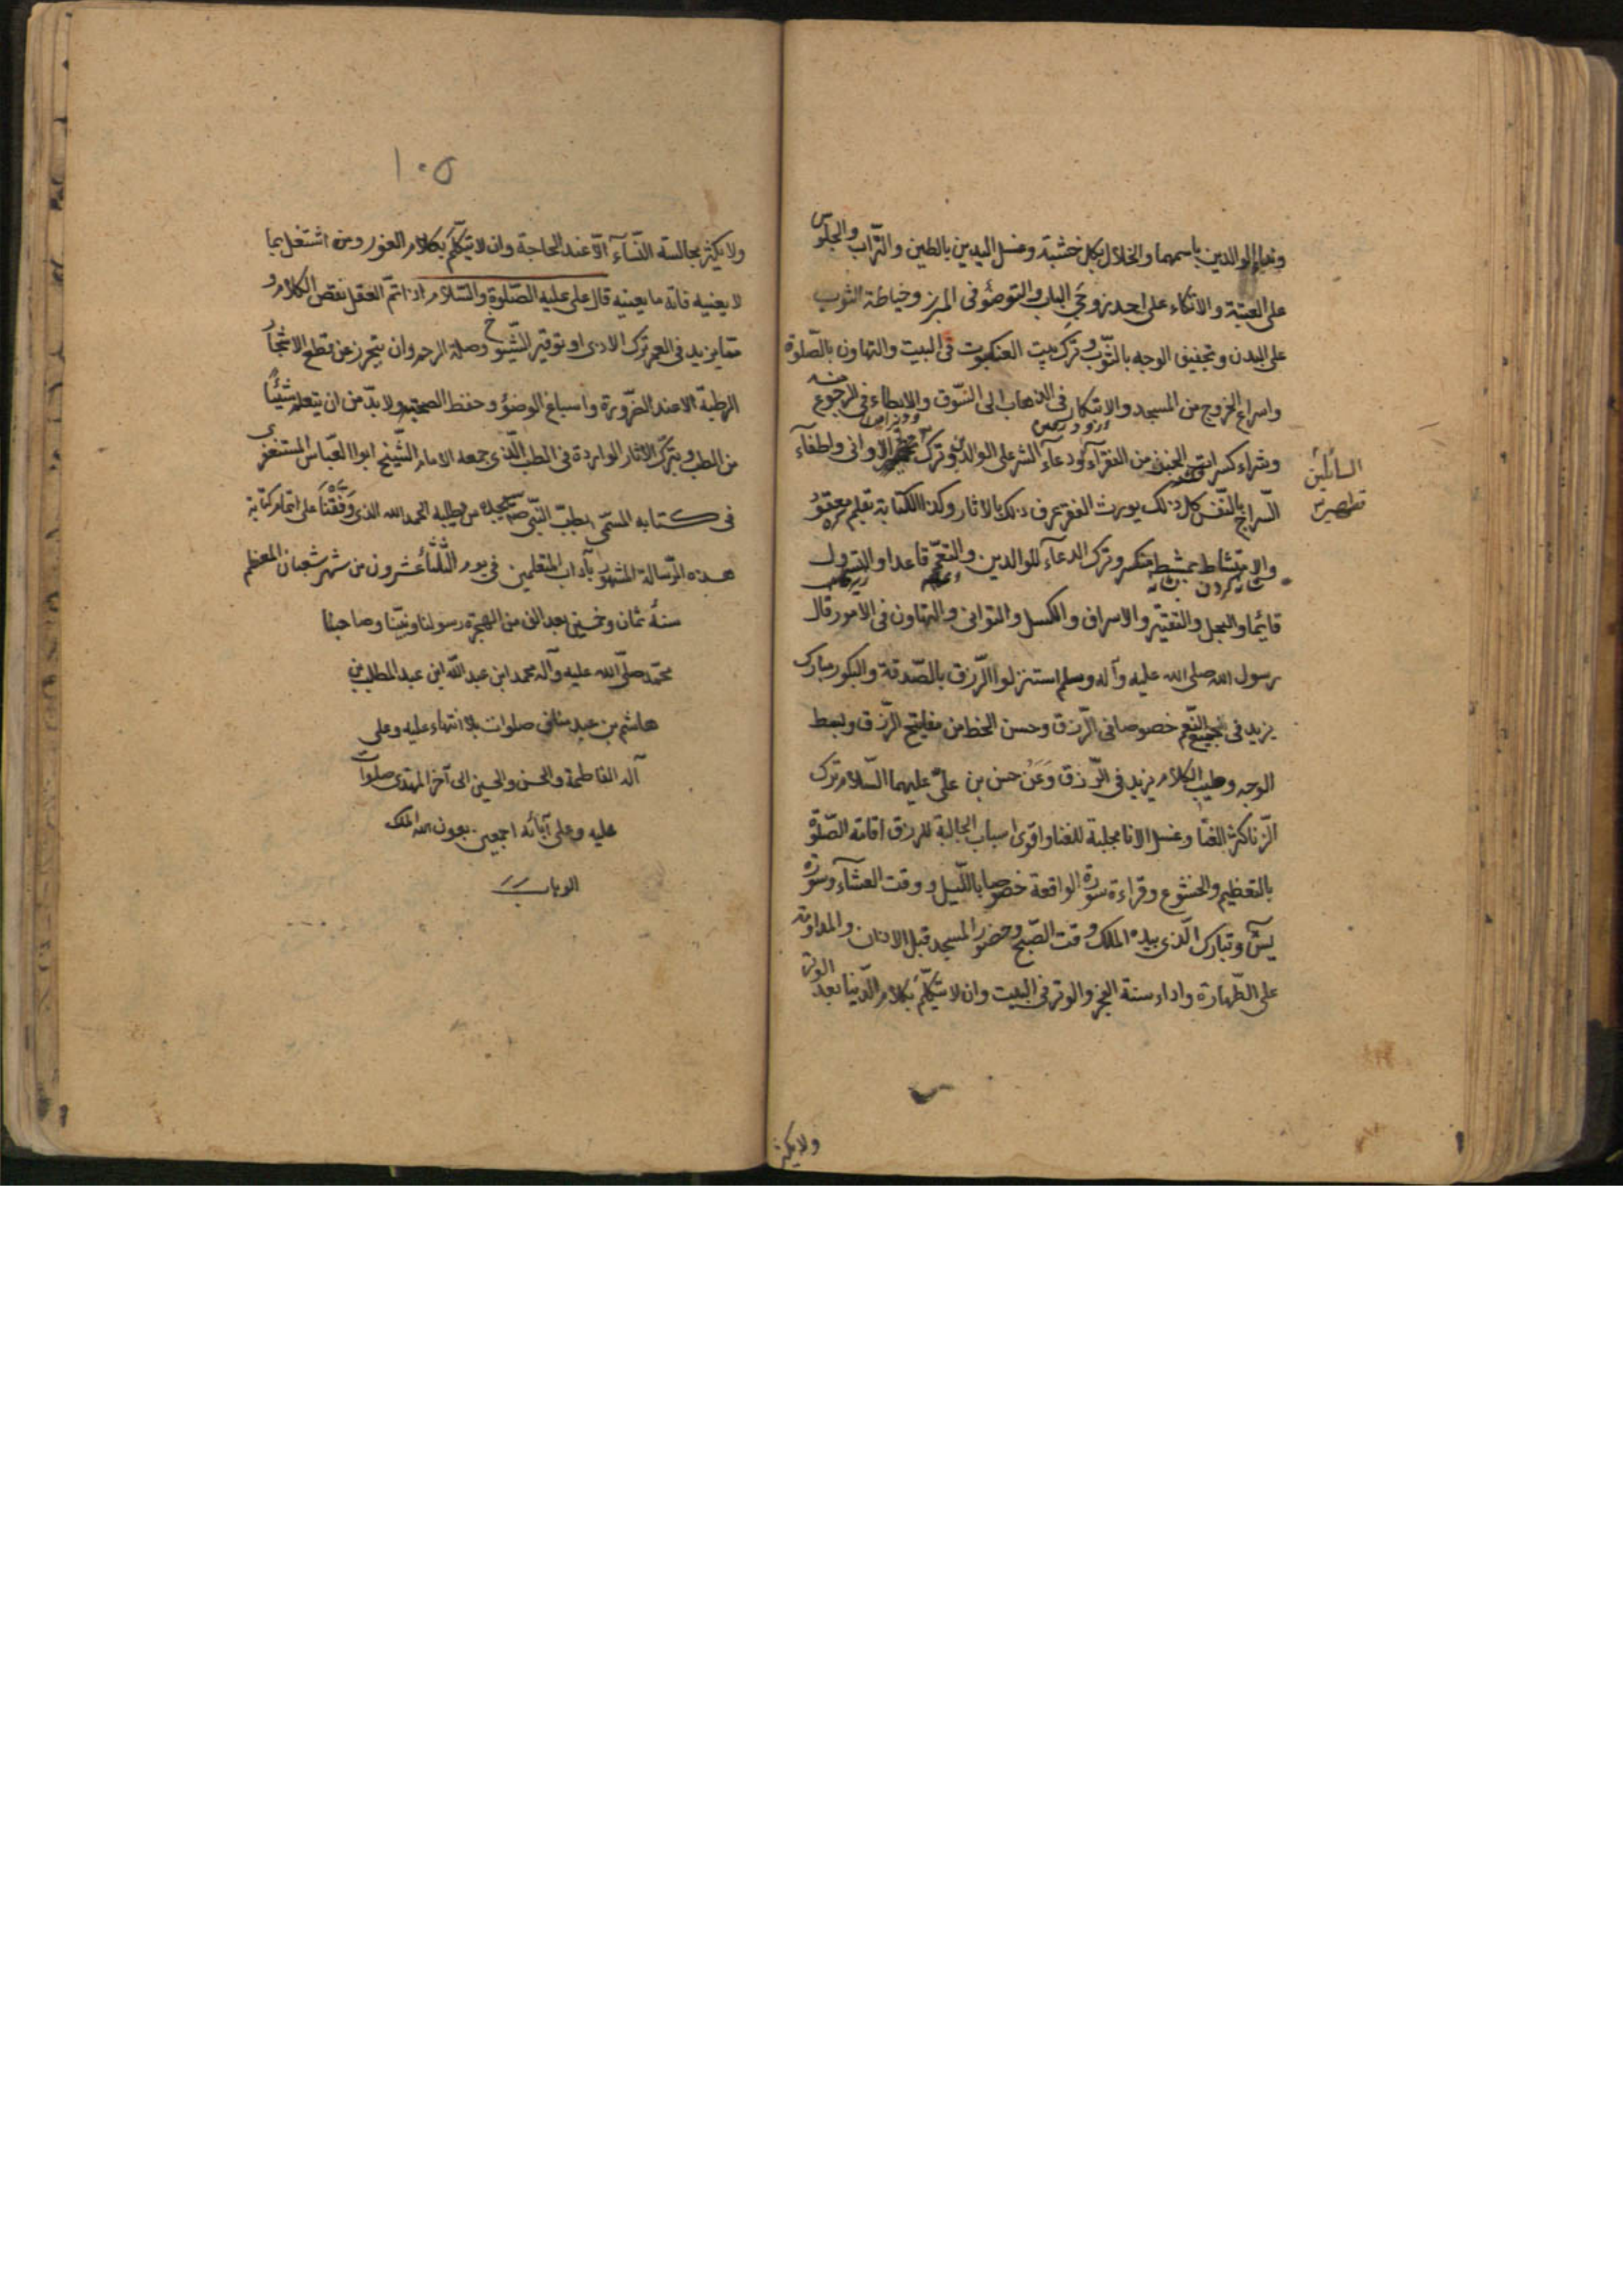 ونداء الوالدين باسمهما والخلال بكل خشبة وغسل اليدين بالطين والتراب والجلوس
على العتبة والاتكاء على احد زوجي الباب والتوضؤ في المبرز وخياطة الثوب
على البدن وتجفيف الوجه بالثوب وترك بيت العنكبوت في البيت والتهاون بالصلوة
واسراع الخروج من المسجد والابتكار في الذهاب الى السوق والابطاء في الرجوع منه
وشراء كسرات الخبز من الفقرآء ودعاء الشر على الوالدين وترك الاوانى واطفاء
السائلين
تطهير
السراج بالنفس كل ذلك يورث الفقر عرف ذلك بالاثار وكذا الكتابة بقلم معقود
والامتشاط بمشط منكسر وترك الدعاء للوالدين والتعمم قاعدا والتسرول
شانه كردن بشانه
قائما والبخل والتقتير والاسراف والكسل والتوانى والتهاون في الامور قال
رسول الله صلى الله عليه وآله وسلم استنزلوا الرزق بالصدقة والبكور مبارك
يزيد في جميع النعم خصوصا في الرزق وحسن الخط من مفاتيح الرزق وبسط
الوجه وطيب الكلام يزيد في الرزق وعن حسن بن على عليهما السلام ترك
الزنا كثرة الغنا وغسل الانا مجلبة للغنا واقوى اسباب الجالبة للرزق اقامة الصلوة
بالتعظيم والخشوع وقراءة سورة الواقعة خصوصا بالليل ووقت العشاء وسورة
يس وتبارك الذى بيده الملك وقت الصبح وحضور المسجد قبل الاذان والمداومة
على الطهارة واداء سنة الفجر والوتر في البيت وان لا يتكلم بكلام الدنيا بعد الوتر
ولا يكثر
١٠٥
ولا يكثر مجالسة النساء الا عند الحاجة وان لا يتكلم بكلام اللغو ومن اشتغل بما
لا يعنيه فاته ما يعنيه قال على عليه الصلوة والسلام اذا تم العقل نقص الكلام و
مما يزيد في العمر ترك الاذى وتوقير الشيوخ وصلة الرحم وان يتحرز عن قطع الاشجار
الرطبة الا عند الضرورة واسباغ الوضوء وحفظ الصحة ولا بد من ان يتعلم شيئا
من الطب ويتبرك الاثار الواردة في الطب الذى جمعه الامام الشيخ ابو العباس المستغفرى
في كتابه المسمى بطب النبى يجده من يطلبه الحمد لله الذى وفقنا على اتمام كتابة
هذه الرسالة المشهور بآداب المتعلمين في يوم الثلثا عشرون من شهر شعبان المعظم
سنة ثمان وخمسين بعد الف من الهجرة رسولنا ونبينا وصاحبنا
محمد صلى الله عليه وآله محمد ابن عبد الله ابن عبد المطلب بن
هاشم بن عبد مناف صلوات بلا انتهاء عليه وعلى
آله الفاطمة والحسن والحسين الى آخر المهتدى صلوات
عليه وعلى آبائه اجمعين بعون الله الملك
الوهاب